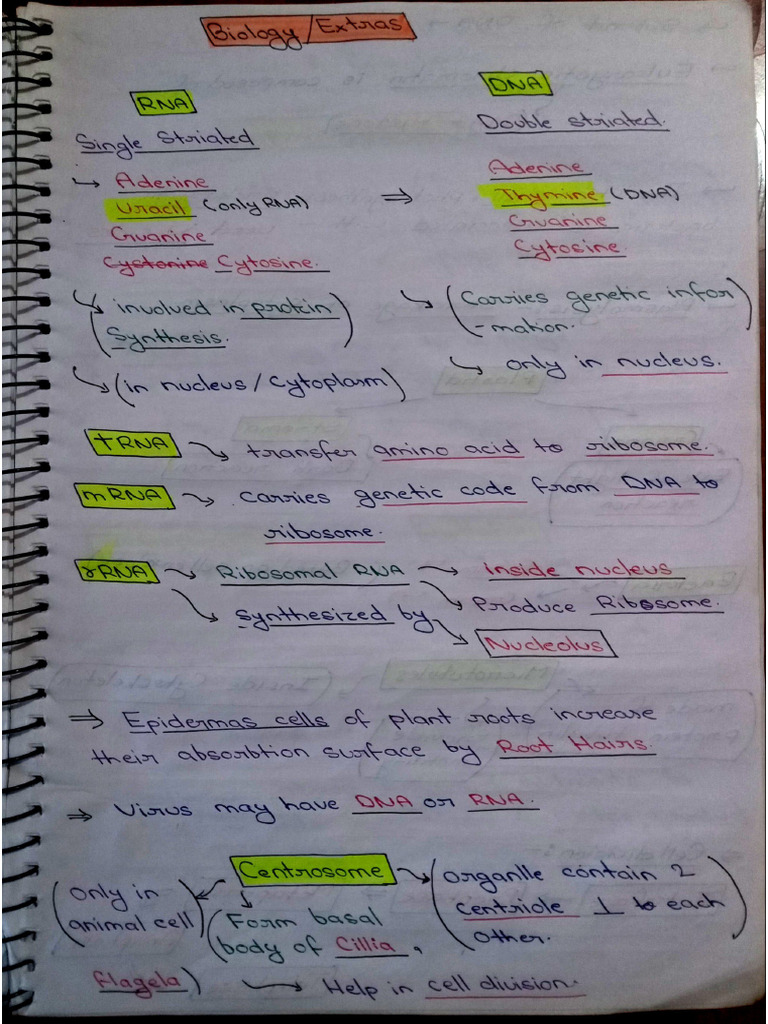 Biology/Extras
RNA
DNA
Single Striated
Double striated.
→ Adenine
Uracil (only RNA)
Guanine
Cystonine Cytosine.
⇒ Adenine
Thymine (DNA)
Guanine
Cytosine.
→ (involved in protin
Synthesis.)
→ (in nucleus/cytoplasm)
→ (Carries genetic infor
-mation.)
→ only in nucleus.
tRNA → transfer amino acid to ribosome.
mRNA → carries genetic code from DNA to
ribosome.
rRNA → Ribosomal RNA → inside nucleus
→ Produce Ribosome.
→ Synthesized by → Nucleolus
⇒ Epidermas cells of plant roots increase
their absorbtion surface by Root Hairs.
⇒ Virus may have DNA or RNA.
Centrosome
(only in
animal cell)
(Form basal
body of Cillia,
flagela)
→ (organlle contain 2
centriole ⊥ to each
other.)
→ Help in cell division.